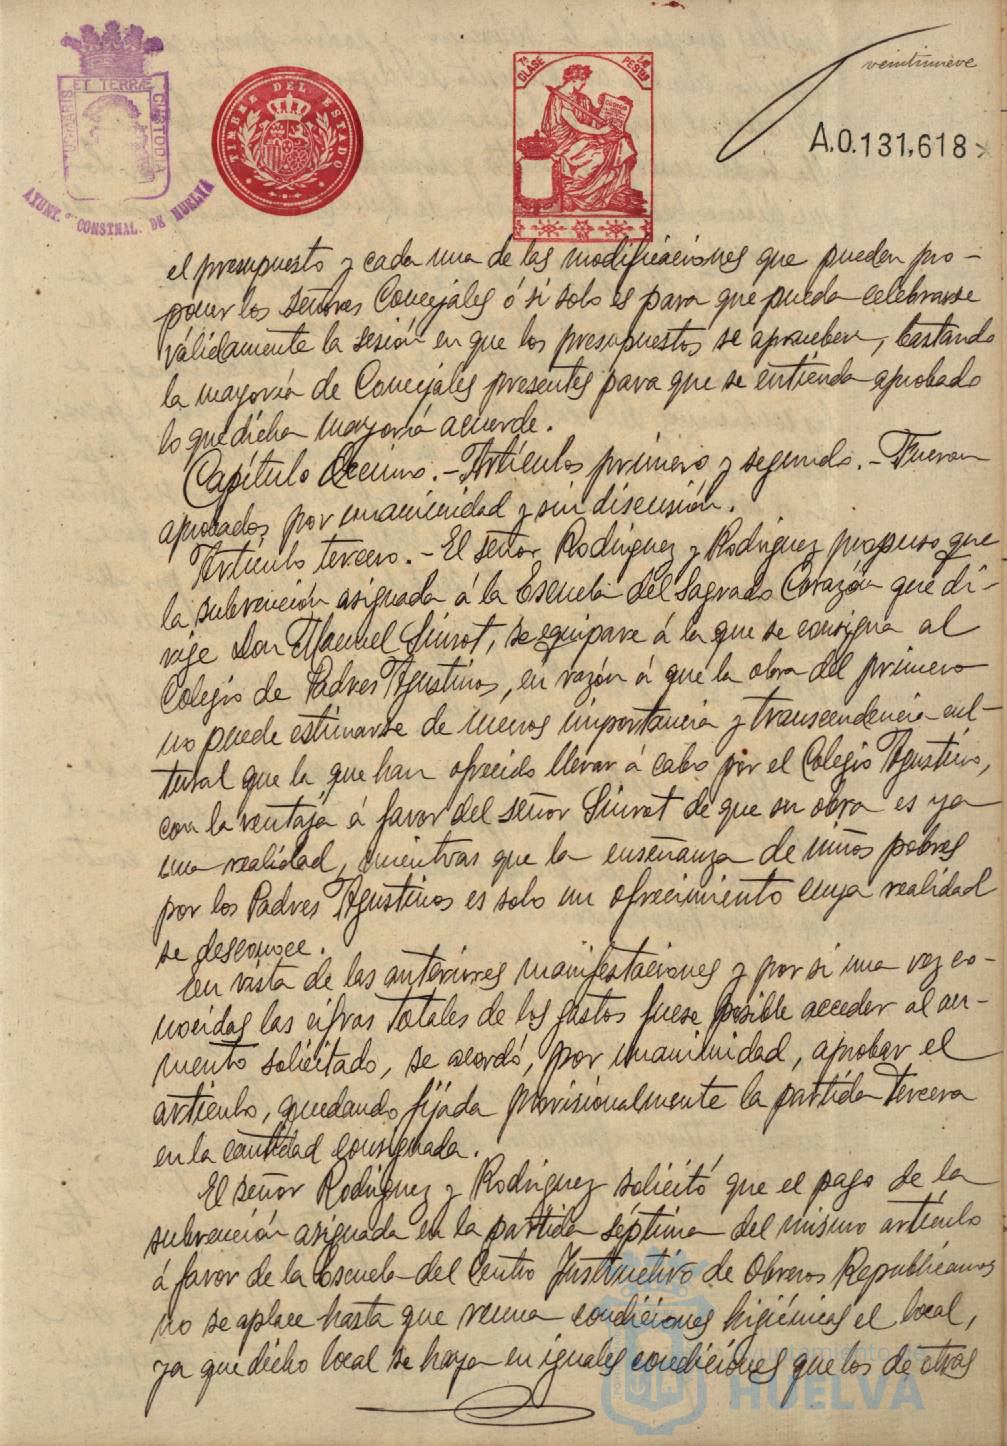 veintinueve
PORTUS MARIS ET TERRÆ CUSTODIA
AYUNT.º CONSTNAL. DE HUELVA
TIMBRE DEL ESTADO
7ª CLASE
PESTAS
A.0.131,618
el presupuesto y cada una de las modificaciones que pueden pro-
poner los señores Concejales ó si solo es para que pueda celebrarse
válidamente la sesión en que los presupuestos se aprueben, bastando
la mayoría de Concejales presentes para que se entienda aprobado
lo que dicha mayoría acuerde.
Capítulo Décimo. - Artículos primero y segundo. - Fueron
aprobados por unanimidad y sin discusión.
Artículo tercero. - El señor Rodríguez y Rodríguez propuso que
la subvención asignada á la Escuela del Sagrado Corazón que di-
rije Don Manuel Siurot, se equipare á la que se consigna al
Colegio de Padres Agustinos, en razón á que la obra del primero
no puede estimarse de menos importancia y transcendencia cul-
tural que la que han ofrecido llevar á cabo por el Colegio Agustino,
con la ventaja á favor del señor Siurot de que su obra es ya
una realidad, mientras que la enseñanza de niños pobres
por los Padres Agustinos es solo un ofrecimiento cuya realidad
se desconoce.
En vista de las anteriores manifestaciones y por si una vez co-
nocidas las cifras totales de los gastos fuese posible acceder al au-
mento solicitado, se acordó, por unanimidad, aprobar el
artículo, quedando fijada provisionalmente la partida tercera
en la cantidad consignada.
El señor Rodríguez y Rodríguez solicitó que el pago de la
subvención asignada en la partida séptima del mismo artículo
á favor de la Escuela del Centro Instructivo de Obreros Republicanos
no se aplace hasta que reuna condiciones higiénicas el local,
ya que dicho local se haya en iguales condiciones que los de otras
Ayuntamiento de
HUELVA